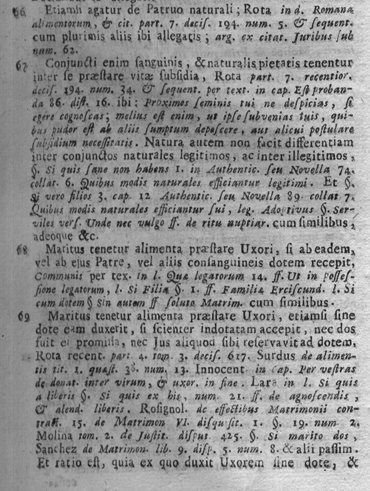 66 Etiamsi agatur de Patruo naturali; Rota in d. Romana
alimentorum, & cit. part. 7. decis. 194. num. 5. & sequent.
cum plurimis aliis ibi allegatis; arg. ex citat. Juribus sub
num. 62.
67 Conjuncti enim sanguinis, & naturalis pietatis tenentur
inter se præstare vitæ subsidia, Rota part. 7. recentior.
decis. 194. num. 34. & sequent. per text. in cap. Est proban-
da 86. dist. 16. ibi: Proximos seminis tui ne despicias, si
egere cognoscas; melius est enim, ut ipse subvenias tuis, qui-
bus pudor est ab aliis sumptum deposcere, aut alicui postulare
subsidium necessitatis. Natura autem non facit differentiam
inter conjunctos naturales legitimos, ac inter illegitimos,
§. Si quis sane non habens 1. in Authentic. seu Novella 74.
collat. 6. Quibus modis naturales efficiantur legitimi. Et §.
Si vero filios 3. cap. 12 Authentic. seu Novella 89. collat 7.
Quibus modis naturales efficiantur sui, leg. Adoptivus §. Ser-
viles vers. Unde nec vulgo ff. de ritu nuptiar. cum similibus,
adeoque &c.
68 Maritus tenetur alimenta præstare Uxori, si ab eadem,
vel ab ejus Patre, vel aliis consanguineis dotem recepit,
Communis per tex. in l. Quæ legatorum 14. ff. Ut in posses-
sione legatorum, l. Si Filia §. 1. ff. Familiæ Erciscund. l. Si
cum dotem § Sin autem ff soluto Matrim. cum similibus.
69 Maritus tenetur alimenta præstare Uxori, etiamsi sine
dote eam duxerit, si scienter indotatam accepit, nec dos
fuit ei promissa, nec Jus aliquod sibi reservavit ad dotem,
Rota recent. part 4. tom. 3. decis. 617. Surdus de alimen-
tis tit. 1. quæst. 38. num. 13. Innocent in Cap. Per vestras
de donat. inter virum, & uxor. in fine. Lara in l. Si quis
a liberis §. Si quis ex his, num. 21. ff. de agnoscendis,
& alend. liberis. Rosignol. de effectibus Matrimonii con-
tract. 15. de Matrimon VI. disquisit. 1. §. 19. num 2.
Molina tom. 2. de Justit. disput 425. §. Si marito dos,
Sanchez de Matrimon. lib. 9. disp. 5. num. 8. & alii passim.
Et ratio est, quia ex quo duxit Uxorem sine dote, &